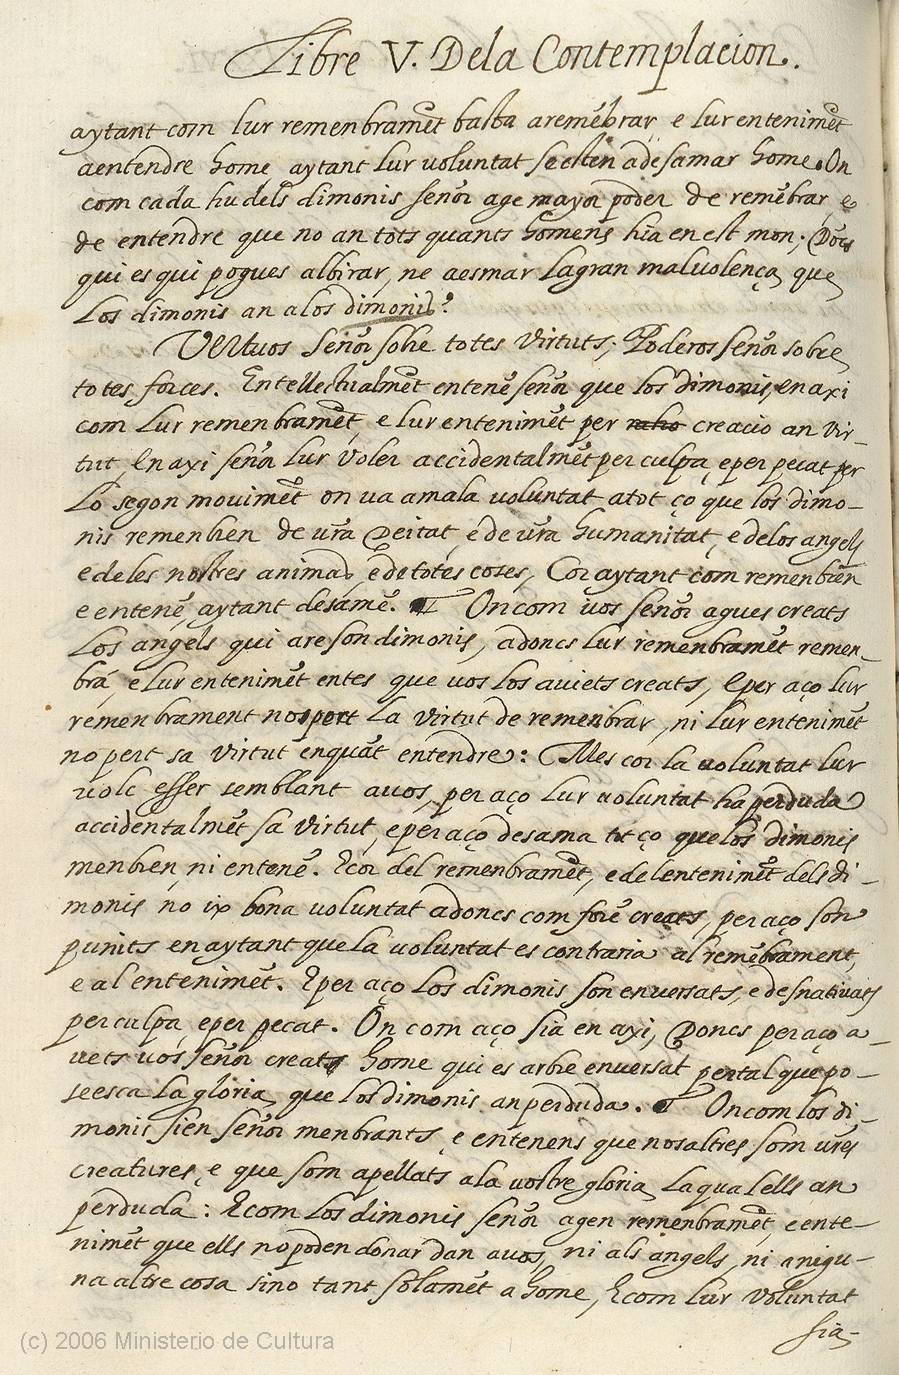 Libre V. Dela Contemplacion.
aytant com lur remenbramēt basta aremēbrar, e lur entenimēt
aentendre home aytant lur voluntat se esten adesamar home. On
com cada hu dels dimonis senõr age mayor poder de remēbrar, e
de entendre que no an tots quants homens hia en est mon; Dōcs
qui es qui pogues albirar, ne aesmar la gran malvolença que
Los dimonis an alos dimonis?
Vertuos Senõr sobre totes Virtuts; Poderos señor sobre
totes forces. Entellectualmēt entenē señor que los dimonis, en axi
com lur remenbramēt, e lur entenimēt per creacio an vir-
tut, En axi señor lur voler accidentalmēt per culpa, e per pecat per
Lo segon movimēt on va a mala voluntat atot ço que los dimo-
nis remenbren de vr̃a Deitat, e de vr̃a humanitat, e delos angels
e deles nostres animas, e de totes coses, Cor aytant com remenbren
e entenē, aytant desamē. On com vos señor agues creats
Los angels qui are son dimonis, adoncs lur remenbramēt remen-
bra, e lur entenimēt entes que vos los aviets creats, E per aço lur
remenbrament nos pert la virtut de remenbrar, ni lur entenimēt
no pert sa virtut enquāt entendre: Mes cor la voluntat lur
volc esser semblant avos, per aço lur voluntat ha perduda
accidentalmēt sa virtut, e per aço desama tot ço que los dimonis
menbren, ni entenē. E cor del remenbramēt, e del entenimēt dels di-
monis no ix bona voluntat adoncs com forē creats, per aço son
punits en aytant que la voluntat es contraria al remēbrament,
e al entenimēt. E per aço Los dimonis son enversats, e desnativats
per culpa, e per pecat. On com aço sia en axi, Doncs per aço a-
vets vos señor creat home qui es arbre enversat per tal que po-
seesca la gloria que los dimonis an perduda. On com los di-
monis sien señor menbrants, e entenens que nosaltres som vr̃es
creatures, e que som apellats ala vostre gloria laqual ells an
perduda: E com Los dimonis señor agen remenbramēt, e ente-
nimēt que ells no poden donar dan avos, ni als angels, ni anigu-
na altre cosa sino tant solamēt a home, E com lur voluntat
sia-
(c) 2006 Ministerio de Cultura